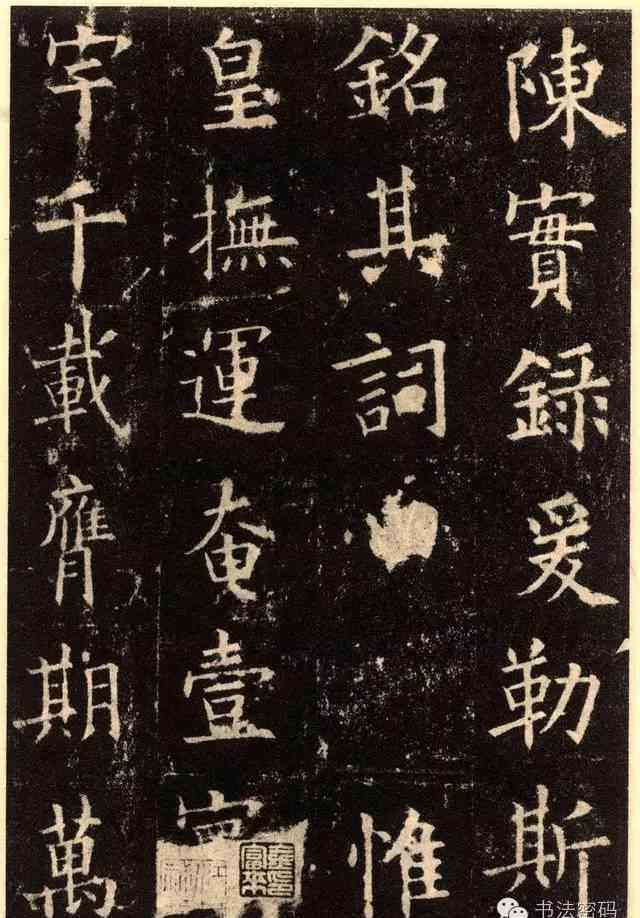 陳實録爰勒斯
銘其詞惟
皇撫運奄壹寰
宇千載膺期萬
书法密码